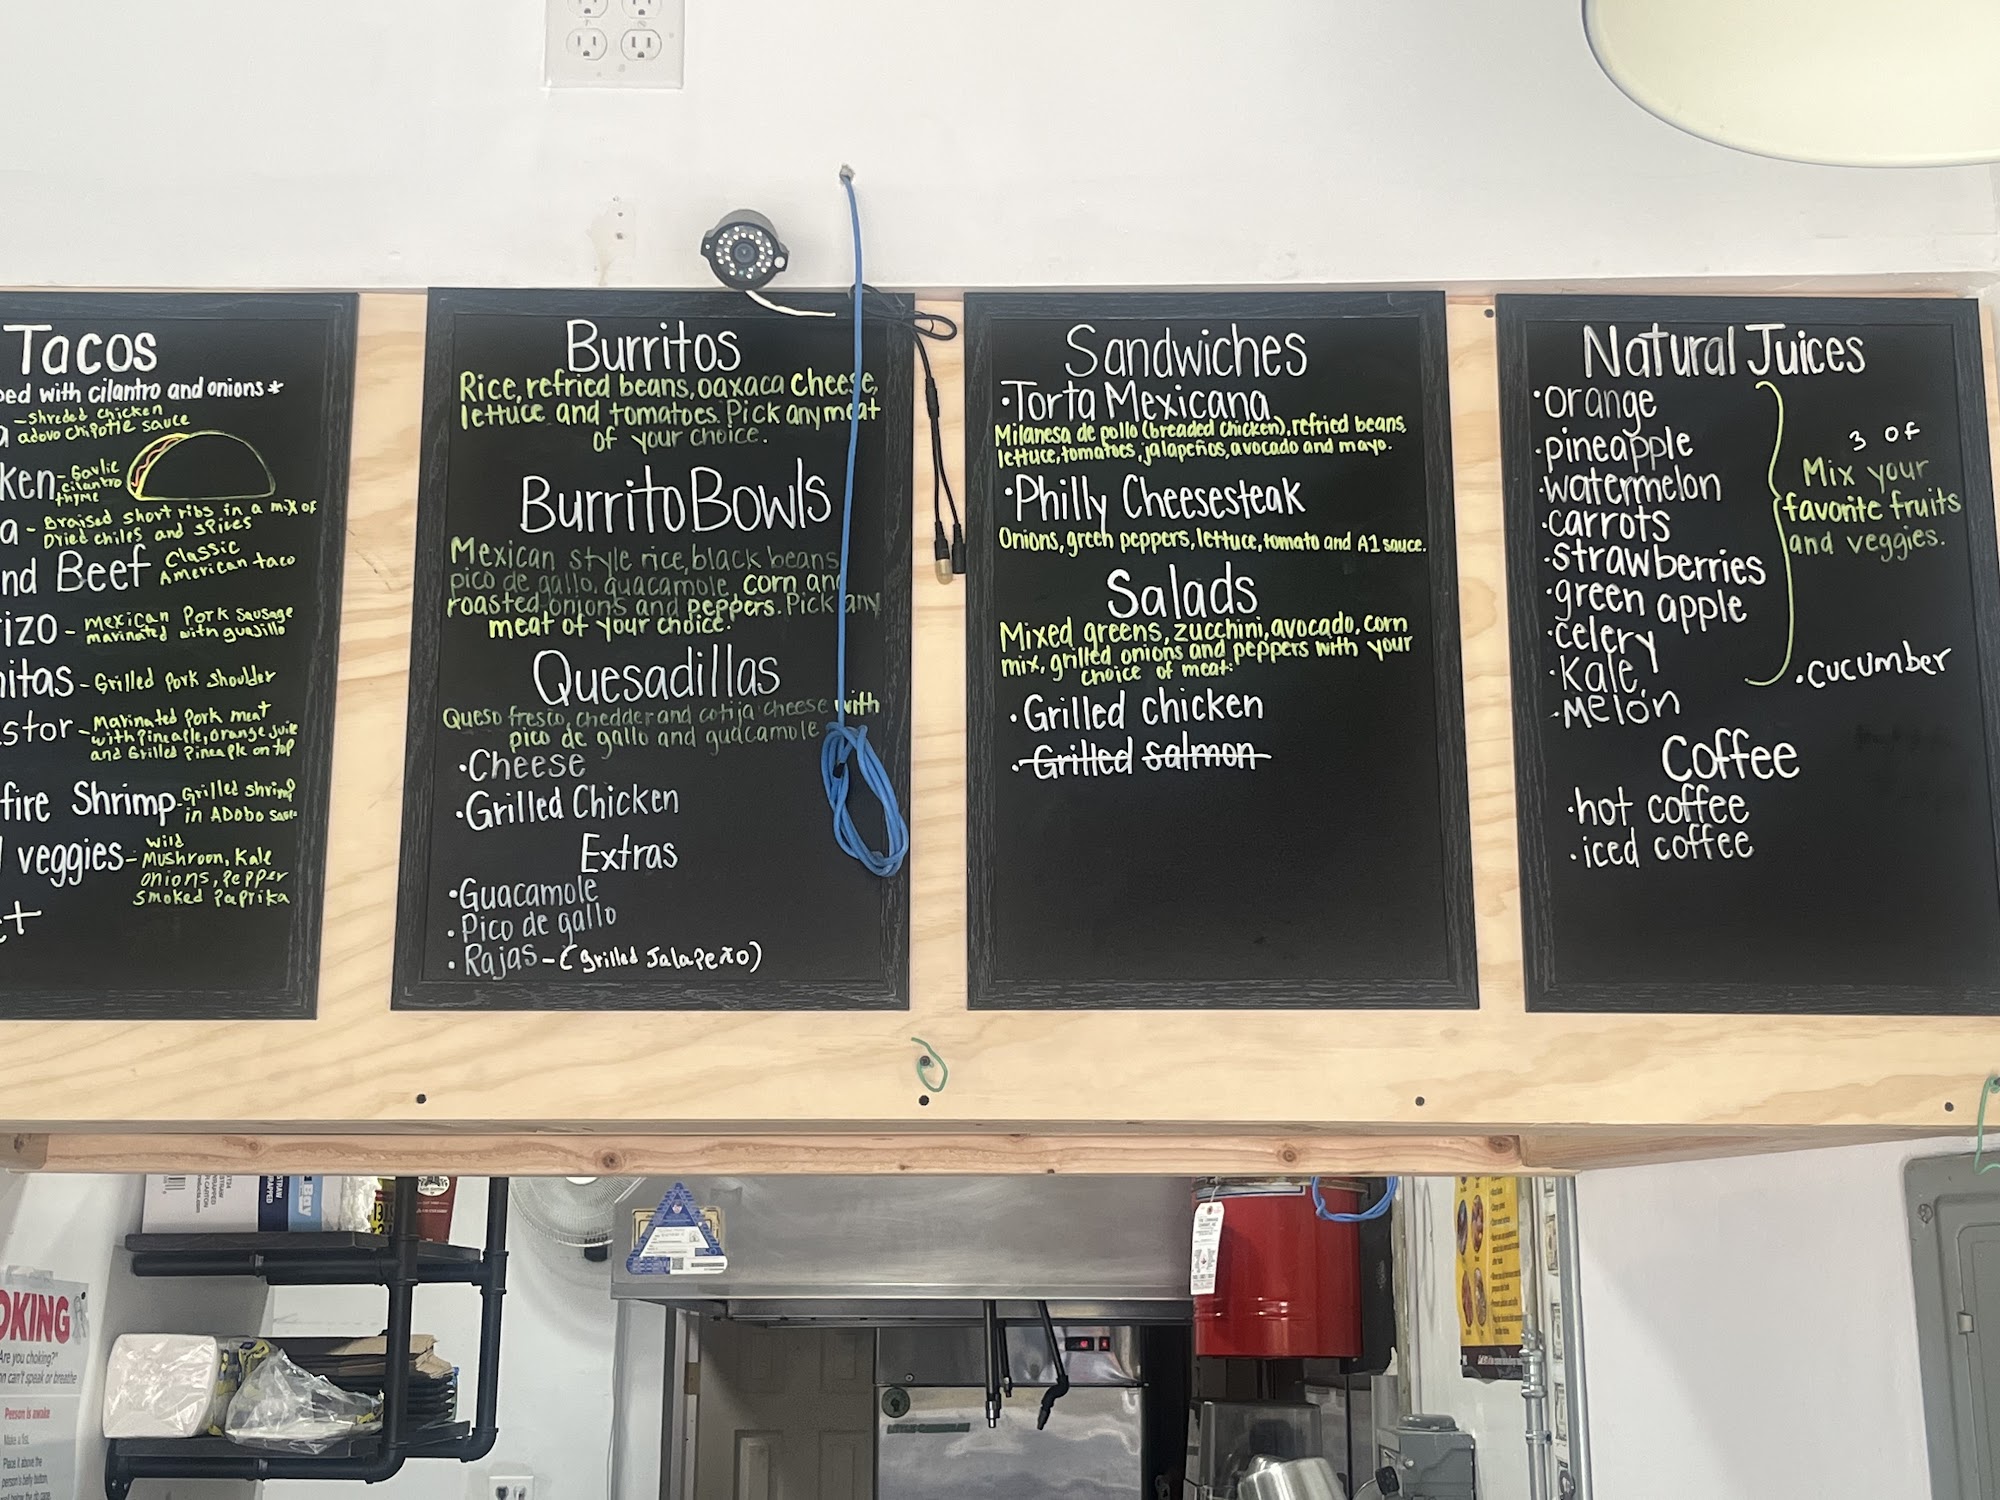 Tacos
with cilantro and onions*
-Shreded Chicken
adovo Chipotle sauce
-Gavlic
cilantro
thyme
- Braised short ribs in a mix of
Dried chiles and spices
Beef Classic
American taco
- Mexican Pork Sausage
marinated with guajillo
-Grilled Pork Shoulder
- Marinated Pork meat
with Pineaple, Orange Juice
and Grilled Pineaple on top
fire Shrimp-Grilled shrimp
in ADobo Sauce
veggies- Wild
Mushroon, Kale
onions, Pepper
Smoked Paprika
Burritos
Rice, refried beans, oaxaca cheese,
lettuce and tomatoes. Pick any meat
of your choice.
Burrito Bowls
Mexican style rice, black beans
pico de gallo, guacamole, corn and
roasted onions and peppers. Pick any
meat of your choice.
Quesadillas
Queso fresco, chedder and cotija cheese with
pico de gallo and guacamole
·Cheese
·Grilled Chicken
Extras
·Guacamole
·Pico de gallo
·Rajas-(grilled Jalapeño)
Sandwiches
·Torta Mexicana
Milanesa de pollo (breaded chicken), refried beans,
lettuce, tomatoes, jalapeños, avocado and mayo.
·Philly Cheesesteak
Onions, green peppers, lettuce, tomato and A1 sauce.
Salads
Mixed greens, zucchini, avocado, corn
mix, grilled onions and peppers with your
choice of meat:
·Grilled chicken
·Grilled salmon
Natural Juices
·orange
·pineapple
·watermelon
·carrots
·strawberries
·green apple
·celery
·Kale,
·Melon
3 of
Mix your
favorite fruits
and veggies.
·cucumber
Coffee
·hot coffee
·iced coffee
Are you choking?"
can't speak or breathe
Person is awake
Make a fist.
Place it above the
person's belly button,